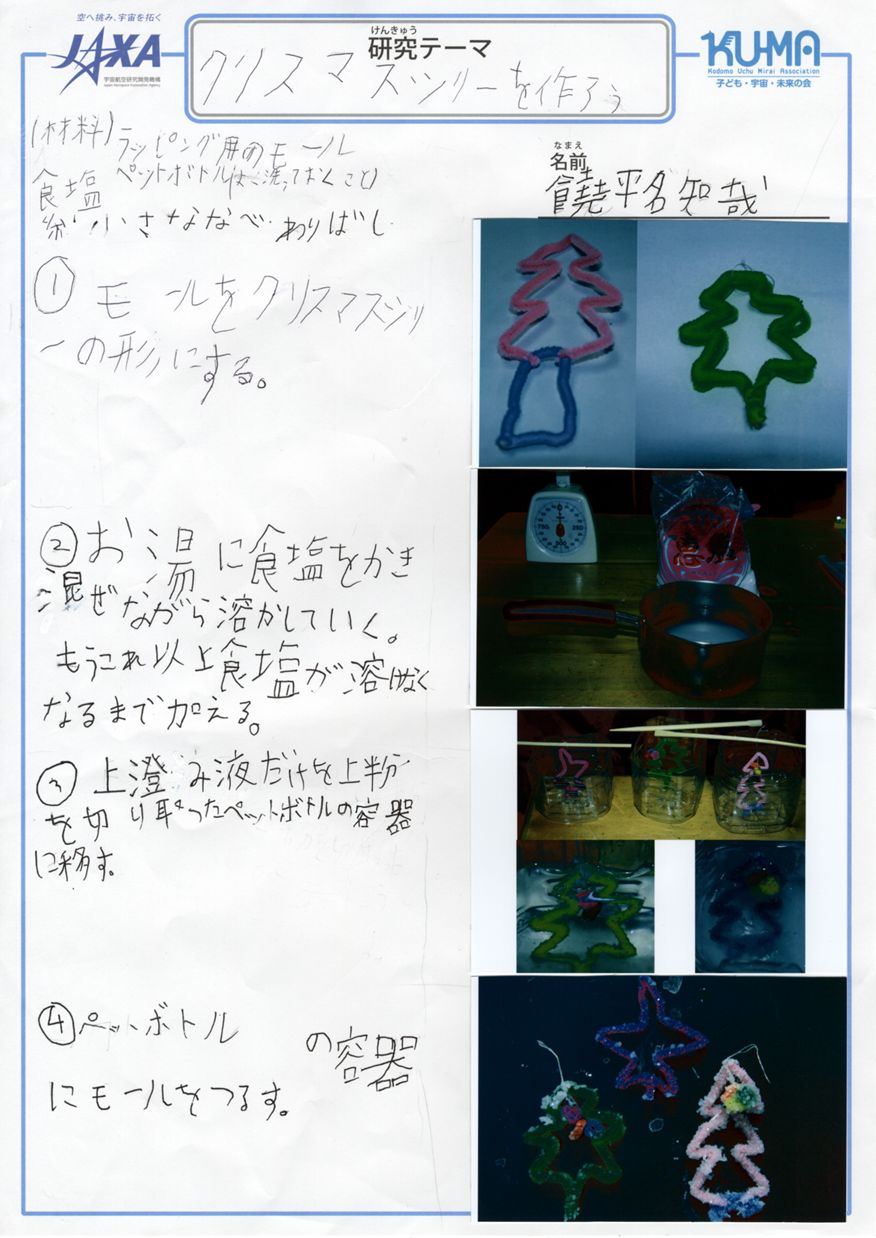 空へ挑み、宇宙を拓く
JAXA
宇宙航空研究開発機構
Japan Aerospace Exploration Agency
けんきゅう
研究テーマ
クリスマスツリーを作ろう
KU-MA
Kodomo Uchu Mirai Association
子ども・宇宙・未来の会
(材料)ラッピング用のモール
食塩 ペットボトル(は洗っておくこと)
糸 小さななべ わりばし
なまえ
名前
饒平名知哉
① モールをクリスマスツリ
ーの形にする。
② お湯に食塩をかき
混ぜながら溶かしていく。
もうこれ以上食塩が溶けなく
なるまで加える。
③ 上澄み液だけを上部分
を切り取ったペットボトルの容器
に移す。
④ ペットボトルの容器
にモールをつるす。